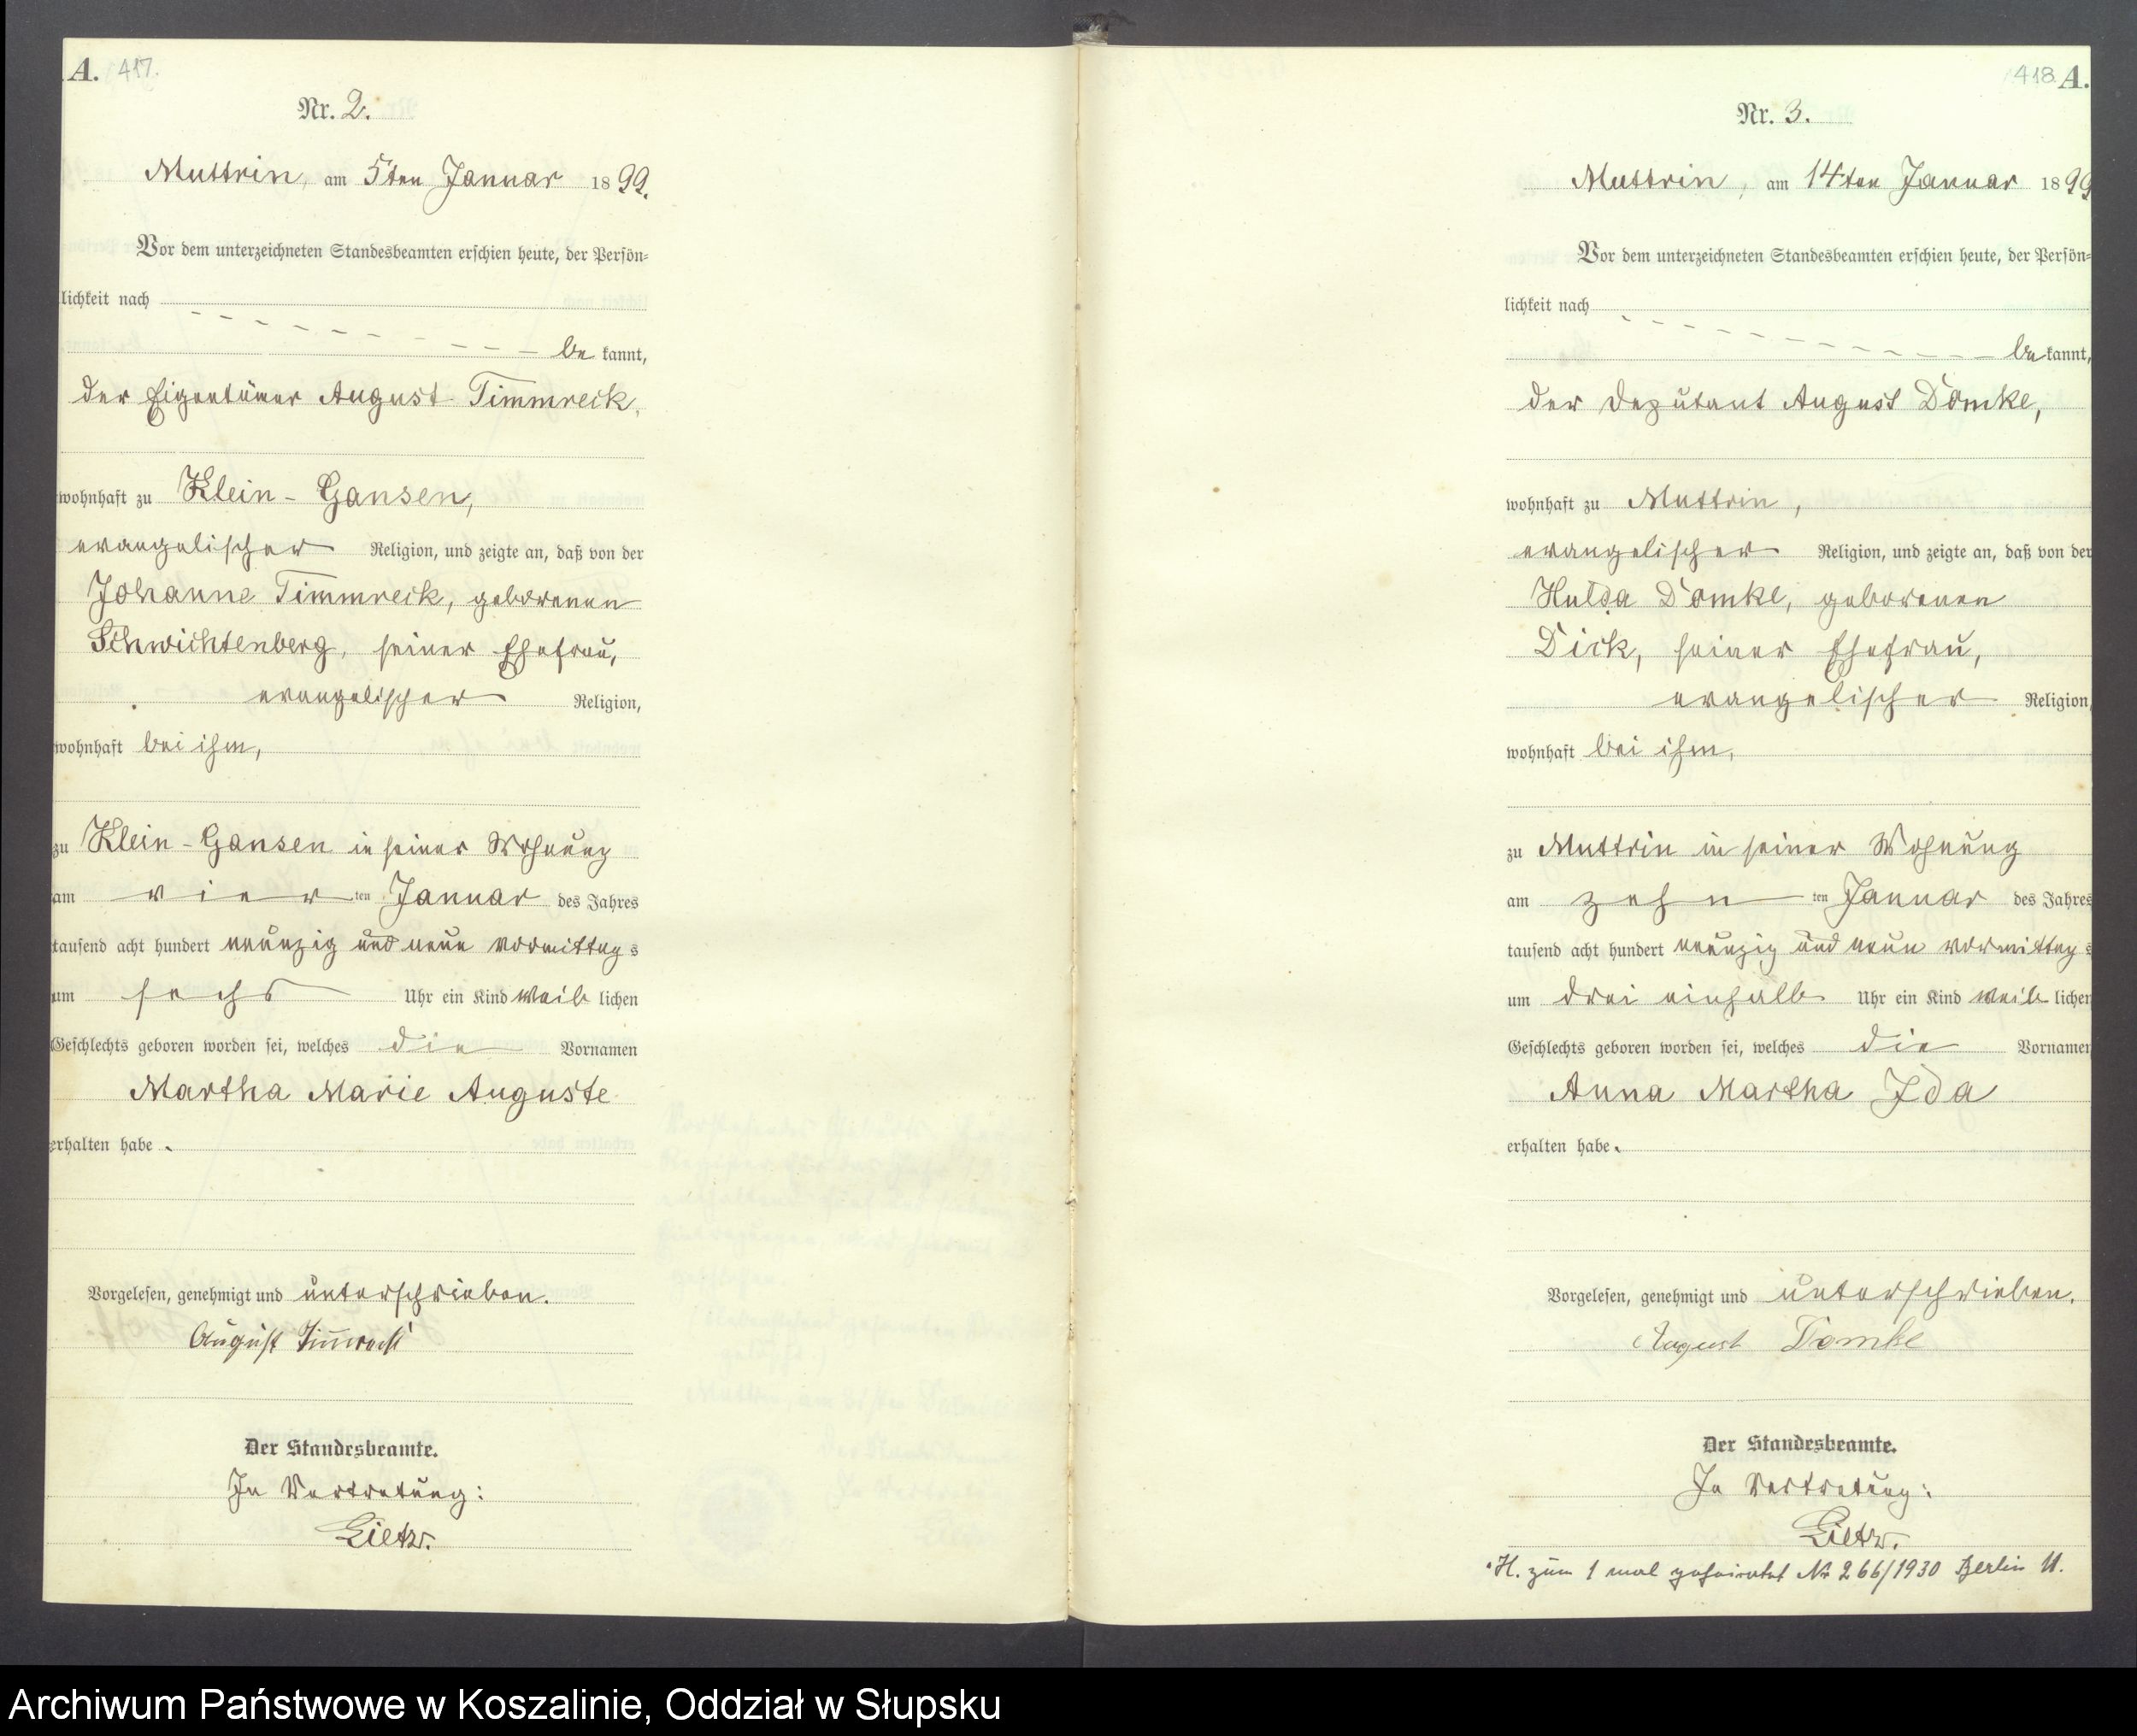 A. 417.
Nr. 2.
Muttrin, am 5ten Januar 1899.
Vor dem unterzeichneten Standesbeamten erschien heute, der Persön-
lichkeit nach
be kannt,
der Eigentümer August Timmreck,
wohnhaft zu Klein-Gansen,
evangelischer Religion, und zeigte an, daß von der
Johanne Timmreck, geborenen
Schwichtenberg, seiner Ehefrau,
evangelischer Religion,
wohnhaft bei ihm,
zu Klein-Gansen in seiner Wohnung
am vier ten Januar des Jahres
tausend acht hundert neunzig und neun vormittag s
um sechs Uhr ein Kind weib lichen
Geschlechts geboren worden sei, welches die Vornamen
Martha Marie Auguste
erhalten habe.
Vorgelesen, genehmigt und unterschrieben.
August Timreck
Der Standesbeamte.
In Vertretung:
Lietz.
418. A.
Nr. 3.
Muttrin, am 14ten Januar 1899
Vor dem unterzeichneten Standesbeamten erschien heute, der Persön-
lichkeit nach
be kannt,
der Deputant August Domke,
wohnhaft zu Muttrin,
evangelischer Religion, und zeigte an, daß von der
Hulda Domke, geborenen
Dick, seiner Ehefrau,
evangelischer Religion,
wohnhaft bei ihm,
zu Muttrin in seiner Wohnung
am zehn ten Januar des Jahres
tausend acht hundert neunzig und neun vormittag s
um drei einhalb Uhr ein Kind weib lichen
Geschlechts geboren worden sei, welches die Vornamen
Anna Martha Ida
erhalten habe.
Vorgelesen, genehmigt und unterschrieben.
August Domke
Der Standesbeamte.
In Vertretung:
Lietz.
H. zum 1 mal geheiratet Nr 266/1930 Berlin 11.
Archiwum Państwowe w Koszalinie, Oddział w Słupsku